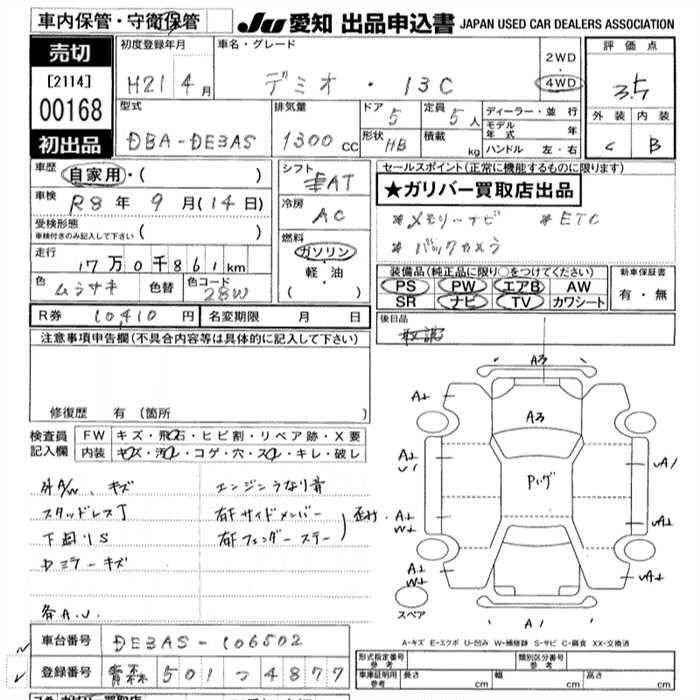 車内保管・守衛保管
JU 愛知 出品申込書 JAPAN USED CAR DEALERS ASSOCIATION
売切
[2114]
00168
初出品
初度登録年月 車名・グレード
H21 4月 デミオ・13C
2WD
4WD
評価点
3.5
外装 内装
C B
型式 排気量 ドア 定員 ディーラー・並行
DBA-DE3AS 1300cc 5 5人
モデル年式 年
形状 HB 積載 kg ハンドル 左・右
車歴 自家用・( )
シフト AT
車検 R8年 9月(14日)
冷房 AC
受検形態 ( )
車検付きのみ記入して下さい
走行 17万0千861km
燃料 ガソリン
軽・油
( )
色 ムラサキ 色替 色コード 28W
セールスポイント(正常に機能するものに限ります)
★ガリバー買取店出品
*メモリーナビ *ETC
*バックカメラ
装備品(純正品に限り○をつけてください) 新車保証書
PS PW エアB AW 有・無
SR ナビ TV カワシート
R券 10,410円 名変期限 月 日
後日品
注意事項申告欄(不具合内容等は具体的に記入して下さい)
修復歴 有 (箇所
検査員記入欄 FW キズ・飛石・ヒビ割・リペア跡・X要
内装 キズ・汚レ・コゲ・穴・スレ・キレ・破レ
外A/W、キズ エンジンうなり音
スタッドレスT 右F サイドメンバー
下廻りS 右F フェンダーステー
ウミラーキズ
各A.U.
A3
A3
Pレグ
A1
U1
W
スペア
A1
A-キズ E-エクボ U-凹み W-補修跡 S-サビ C-腐食 XX-交換済
車台番号 DE3AS-106502
登録番号 青森 501 つ 4877
形式指定番号 参考 類別区分番号 参考
車庫証明用 参考 長さ cm 幅 cm 高さ cm